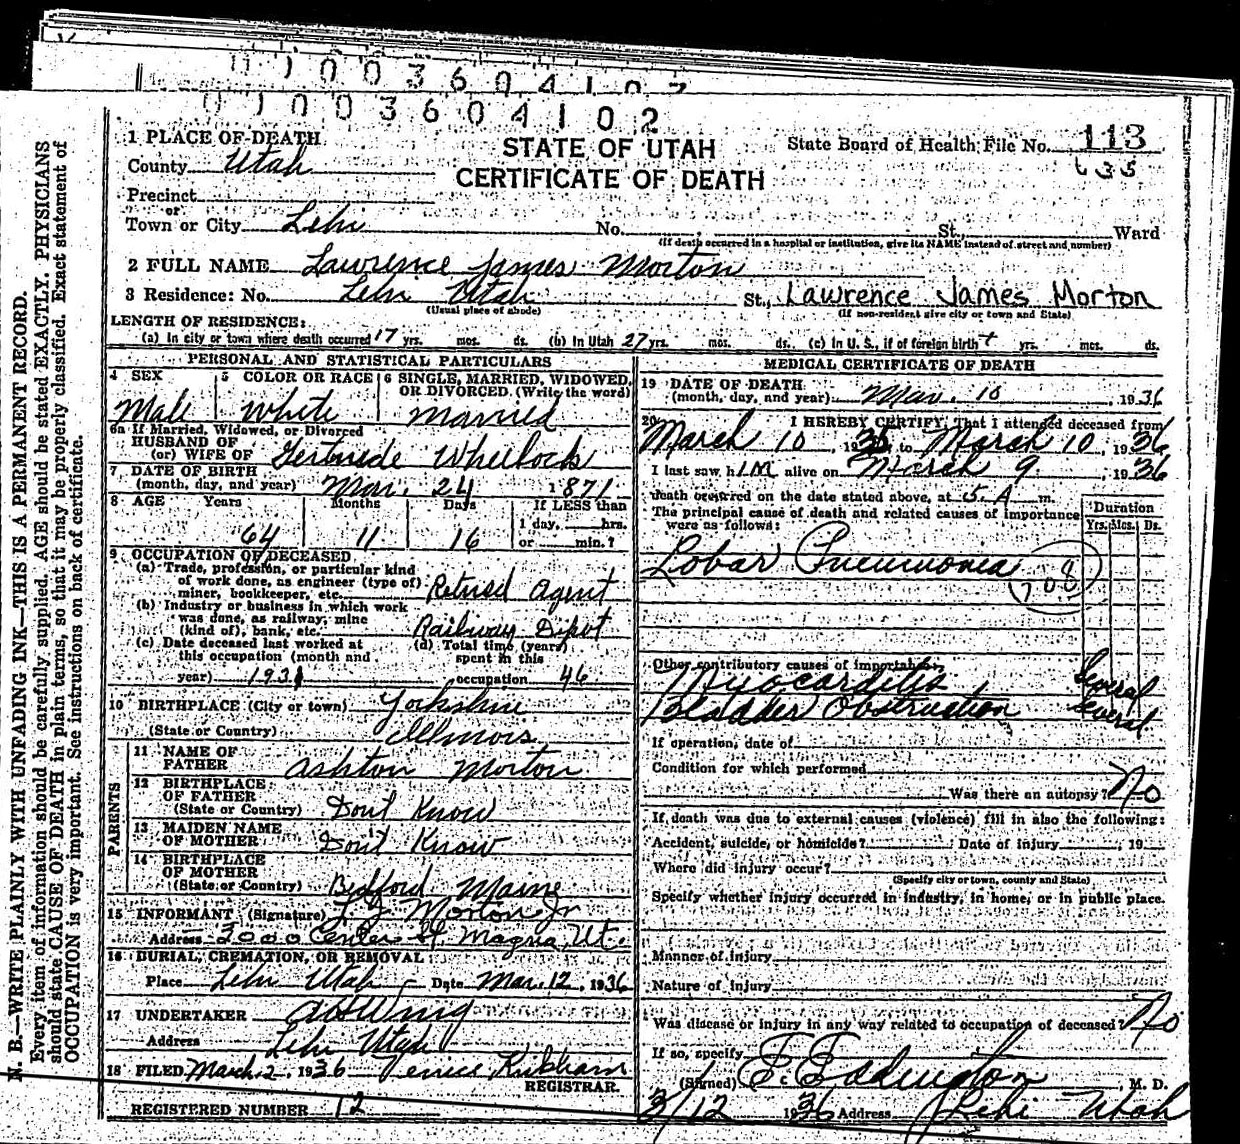 0 1 0 0 3 6 0 4 1 0 2
0 1 0 0 3 6 0 4 1 0 2
1 PLACE OF DEATH
STATE OF UTAH
State Board of Health File No. 113
County Utah
635
CERTIFICATE OF DEATH
Precinct
or
Town or City Lehi No. St., Ward
(If death occurred in a hospital or institution, give its NAME instead of street and number)
2 FULL NAME Lawrence James Morton
3 Residence: No. Lehi Utah St., Lawrence James Morton
(Usual place of abode) (If non-resident give city or town and State)
LENGTH OF RESIDENCE:
(a) In city or town where death occurred 17 yrs. mos. ds. (b) In Utah 27 yrs. mos. ds. (c) In U. S., if of foreign birth yrs. mos. ds.
PERSONAL AND STATISTICAL PARTICULARS
4 SEX 5 COLOR OR RACE 6 SINGLE, MARRIED, WIDOWED, OR DIVORCED (Write the word)
Male White Married
6a If Married, Widowed, or Divorced
HUSBAND OF
(or) WIFE OF Gertrude Wheelock
7 DATE OF BIRTH
(month, day, and year) Mar. 24 1871
8 AGE Years Months Days If LESS than
1 day, hrs.
64 11 16 or min.?
9 OCCUPATION OF DECEASED
(a) Trade, profession, or particular kind
of work done, as engineer (type of)
miner, bookkeeper, etc. Retired Agent
(b) Industry or business in which work
was done, as railway, mine
(kind of), bank, etc. Railway Depot
(c) Date deceased last worked at
this occupation (month and
year) 1931
(d) Total time (years)
spent in this
occupation 46
10 BIRTHPLACE (City or town) Yorkshire
(State or Country) Illinois
PARENTS
11 NAME OF
FATHER Ashton Morton
12 BIRTHPLACE
OF FATHER
(State or Country) Don't Know
13 MAIDEN NAME
OF MOTHER Don't Know
14 BIRTHPLACE
OF MOTHER
(State or Country) Bedford Maine
15 INFORMANT (Signature) L J Morton Jr
Address 3000 Center St. Magna, Ut.
16 BURIAL, CREMATION, OR REMOVAL
Place Lehi Utah Date Mar. 12, 1936
17 UNDERTAKER
Address Lehi Utah
18 FILED March 2, 1936 Kirkham
REGISTRAR.
REGISTERED NUMBER 12
MEDICAL CERTIFICATE OF DEATH
19 DATE OF DEATH
(month, day, and year) Mar. 10, 1936
20 I HEREBY CERTIFY, That I attended deceased from
March 10, 1936, to March 10, 1936
I last saw him alive on March 9, 1936
death occurred on the date stated above, at 5 A m.
The principal cause of death and related causes of importance
were as follows:
Duration
Yrs. Mos. Ds.
Lobar Pneumonia
108
Other contributory causes of importance
Myocarditis Several
Bladder Obstruction Several
If operation, date of
Condition for which performed
Was there an autopsy? No
If death was due to external causes (violence) fill in also the following:
Accident, suicide, or homicide? Date of injury , 19
Where did injury occur?
(Specify city or town, county and State)
Specify whether injury occurred in industry, in home, or in public place.
Manner of injury
Nature of injury
Was disease or injury in any way related to occupation of deceased? No
If so, specify
(Signed) Eddington, M. D.
3/12 1936 Address Lehi Utah
N. B.—WRITE PLAINLY WITH UNFADING INK—THIS IS A PERMANENT RECORD.
Every item of information should be carefully supplied. AGE should be stated EXACTLY. PHYSICIANS
should state CAUSE OF DEATH in plain terms, so that it may be properly classified. Exact statement of
OCCUPATION is very important. See instructions on back of certificate.